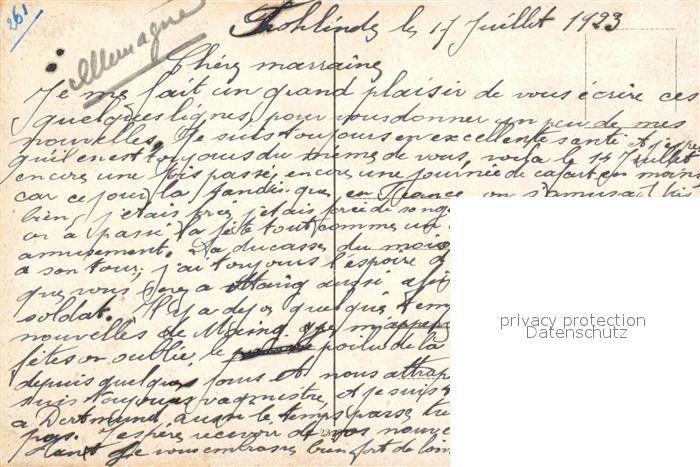 261
Allemagne
Frohlinde le 17 Juillet 1923
Chère marraine
Je me fait un grand plaisir de vous écrire ces
quelques lignes, pour vous donner un peu de mes
nouvelles. Je suis toujours en excellente santé et j'espère
qu'il en est toujours du même de vous, voila le 14 Juillet
encore une fois passé, encore une journée de cafart en moins
car ce jour la tandis que en France on s'amusait
bien, j'etais forcé de
on a passé la fête tout comme un
amusement. La ducasse du mois
a son tour, j'ai toujours l'espoire
que vous serez a Maing aussi
soldat. Il y a deja quelque temps
nouvelles de Maing
fêtes on oublie le poilu de la
depuis quelques jours et nous
suis toujours vagmestre, et je suis
a Dortmund, aussi le temps passe
pas. J'espère recevoir de vos
Je vous embrasse bien fort de loin
privacy protection
Datenschutz